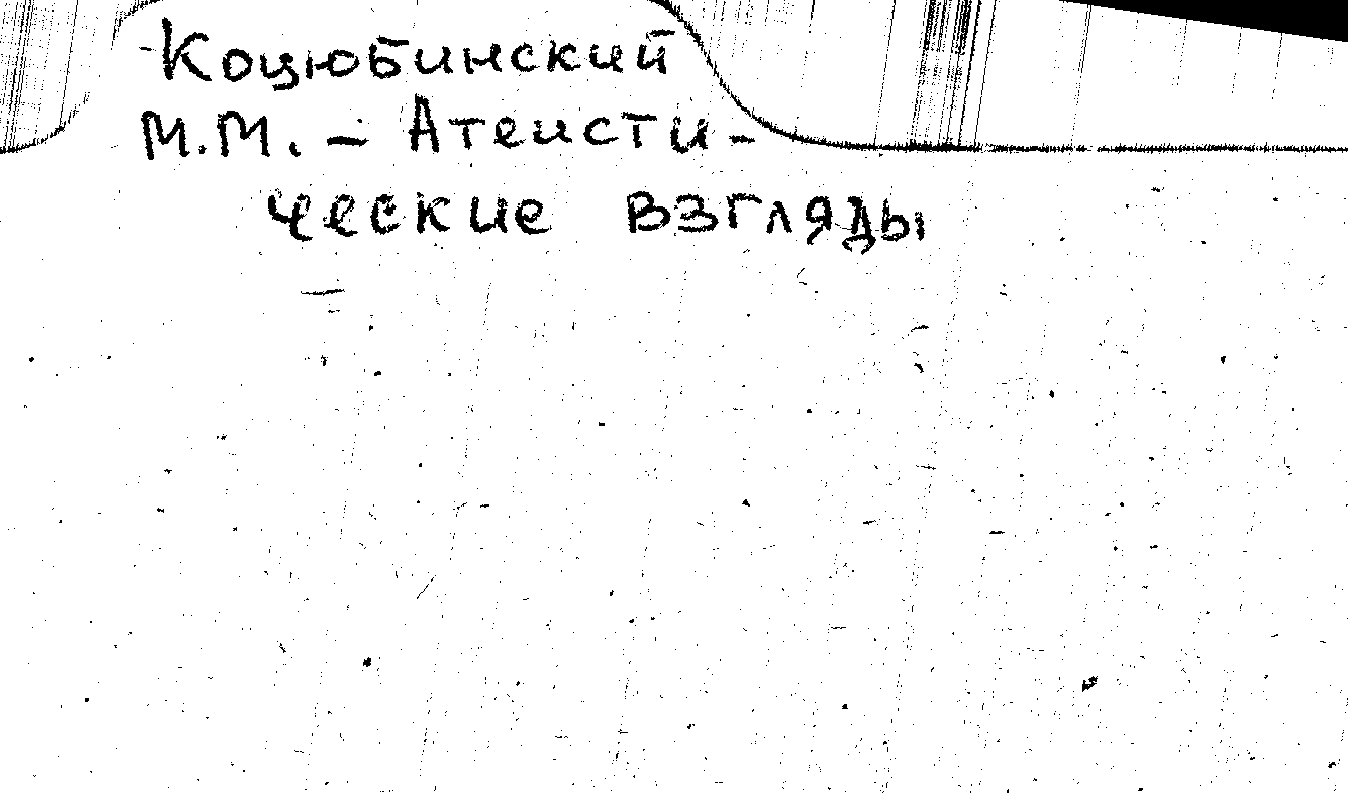 Коцюбинский
М.М. – Атеисти-
ческие взгляды